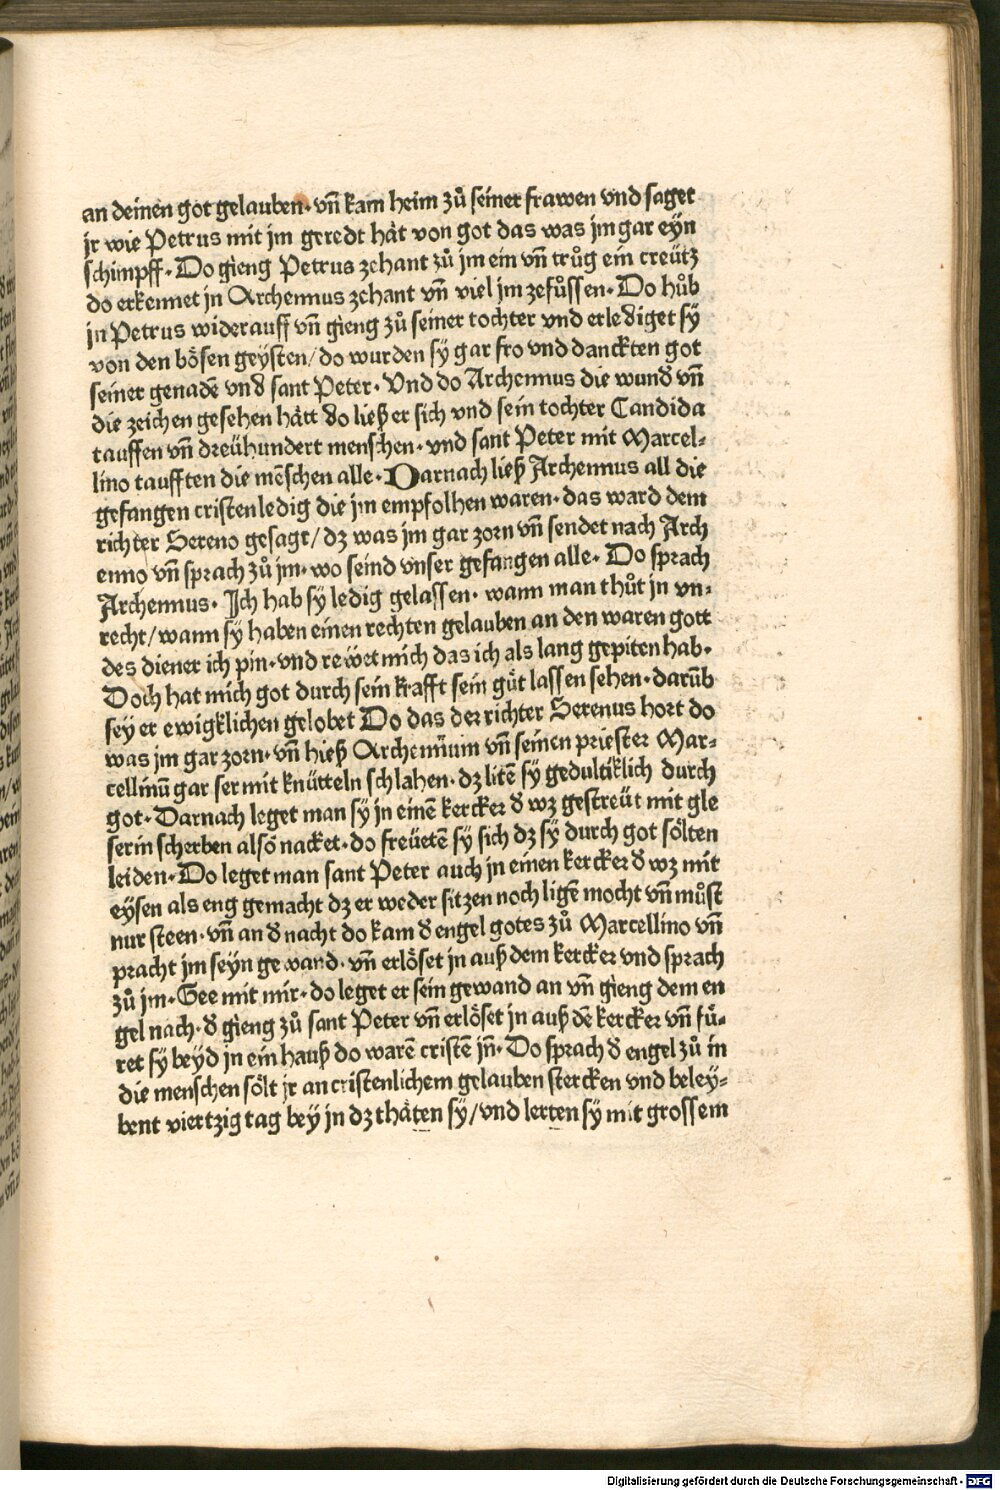 an deinen got gelauben· vn̄ kam heim zů seiner frawen vnd saget
jr wie Petrus mit jm geredt hät von got das was jm gar eyn
schimpff· Do gieng Petrus zehant zů jm ein vn̄ trůg ein creütz
do erkennet jn Archemius zehant vn̄ viel jm zefůssen· Do hůb
jn Petrus widerauff vn̄ gieng zů seiner tochter vnd erlediget sy
von den bösen geysten/ do wurden sy gar fro vnd danckten got
seiner genadē vnd sant Peter· Vnd do Archemius die wund̄ vn̄
die zeichen gesehen hätt do ließ er sich vnd sein tochter Candida
tauffen vn̄ dreühundert menschen· vnd sant Peter mit Marcel⸗
lino taufften die mēschen alle· Darnach ließ Archemius all die
gefangen cristen ledig die jm empfolhen waren· das ward dem
richter Sereno gesagt/ dz was jm gar zorn vn̄ sendet nach Arch
emio vn̄ sprach zů jm· wo seind vnser gefangen alle· Do sprach
Archemius· Ich hab sy ledig gelassen· wann man thůt jn vn⸗
recht/ wann sy haben einen rechten gelauben an den waren gott
des diener ich pin· vnd rewet mich das ich als lang gepiten hab·
Doch hat mich got durch sein krafft sein güt lassen sehen· darūb
sey er ewigklichen gelobet Do das der richter Serenus hort do
was jm gar zorn· vn̄ hieß Archemium vn̄ seinen priester Mar⸗
cellinū gar ser mit knütteln schlahen· dz litē sy gedultiklich durch
got· Darnach leget man sy jn einē kercker d̄ wz gestreüt mit gle
serin scherben also nacket· do freüetē sy sich dz sy durch got sölten
leiden· Do leget man sant Peter auch jn einen kercker d̄ wz mit
eysen als eng gemacht dz er weder sitzen noch ligē mocht vn̄ můst
nur steen· vn̄ an d̄ nacht do kam d̄ engel gotes zů Marcellino vn̄
pracht jm seyn gewand· vn̄ erlöset jn auß dem kercker vnd sprach
zů jm· Gee mit mir· do leget er sein gewand an vn̄ gieng dem en
gel nach· d̄ gieng zů sant Peter vn̄ erlöset jn auß dē kercker vn̄ fů⸗
ret sy beyd jn ein hauß do warē cristē jn̄· Do sprach d̄ engel zů in
die menschen sölt jr an cristenlichem gelauben stercken vnd beley⸗
bent viertzig tag bey jn dz thäten sy/ vnd lerten sy mit grossem
Digitalisierung gefördert durch die Deutsche Forschungsgemeinschaft - DFG